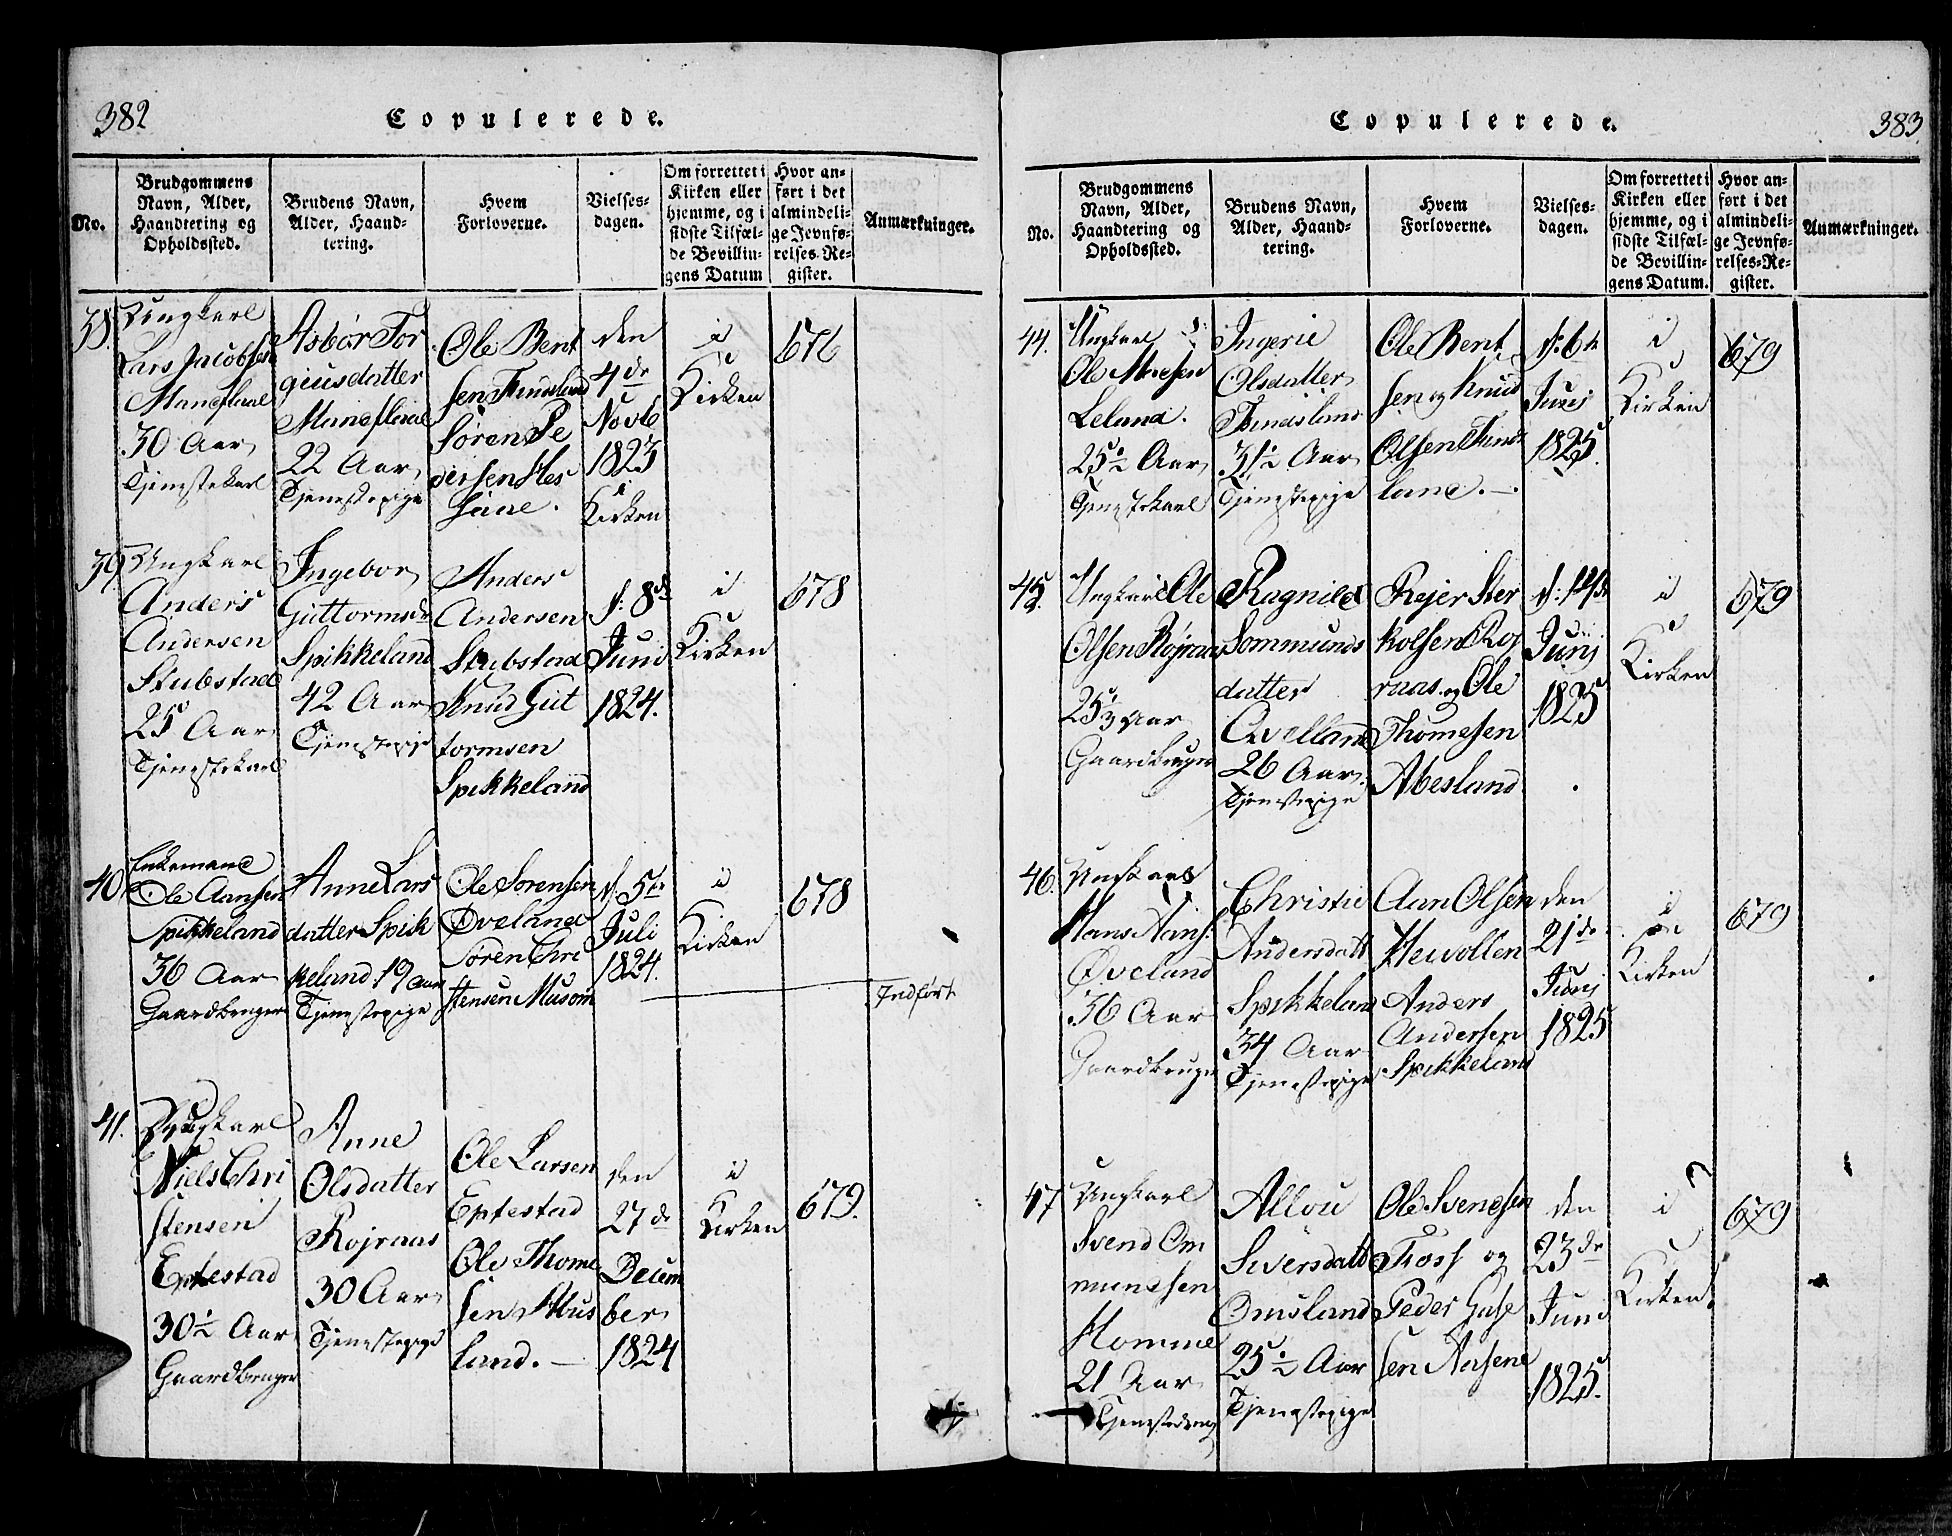 382
Copulerede.
No.
Brudgommens
Navn, Alder,
Haandtering og
Opholdssted.
Brudens Navn,
Alder, Haand-
tering.
Hvem
Forloverne.
Vielses-
dagen.
Om forrettet i
Kirken eller
hjemme, og i
sidste Tilfæl-
de Bevillin-
gens Datum
Hvor an-
ført i det
almindeli-
ge Jevnfø-
relses-Re-
gister.
Anmærkninger.
38.
Ungkarl
Lars Jacobsen
30 Aar
Tjenstekarl
Asbør Tor
giusdatter
22 Aar
Tjenestepige
Ole Bent
sen
Søren Pe
dersen
den
4de
Novb
1823
i
Kirken
i
Kirken
676
39.
Ungkarl
Anders
Andersen
Stubstad
25 Aar
Tjenstekarl
Ingebor
Guttormsdr
Spikkeland
42 Aar
Tjenestepige
Anders
Andersen
Stubstad
Knud Gut
tormsen
Spikkeland
d: 8de
Juni
1824.
i
Kirken
678
40.
Enkemand
Ole Aansen
Spikkeland
36 Aar
Gaardbruger
Anne Lars
datter Spik
keland 19 Aar
Tjenestepige
Ole Sørensen
Øveland
Søren Chri
stensen Musom
d. 5te
Juli
1824.
i
Kirken
678
Indført
41.
Ungkarl
Niels Chri
stensen
Eptestad
30½ Aar
Gaardbruger
Anne
Olsdatter
Røjraas
30 Aar
Tjenestepige
Ole Larsen
Eptestad
Ole Thome
sen
land.
den
27de
Decem
ber
1824
i
Kirken
679.
383
Copulerede.
No.
Brudgommens
Navn, Alder,
Haandtering og
Opholdssted.
Brudens Navn,
Alder, Haand-
tering.
Hvem
Forloverne.
Vielses-
dagen.
Om forrettet i
Kirken eller
hjemme, og i
sidste Tilfæl-
de Bevillin-
gens Datum.
Hvor an-
ført i det
almindeli-
ge Jevnfø-
relses-Re-
gister.
Anmærkninger.
44.
Ungkarl
Ole
Leland.
25½ Aar
Tjenstekarl
Ingerie
Olsdatter
31½ Aar
Tjenestepige
Ole Bent
sen og Knud
Olsen
land.
d: 6te
Junij
1825.
i
Kirken
679
45.
Ungkarl Ole
Olsen Røjraas
Gaardbruger
Ragnild
Sommunds
datter
Qvelland
26 Aar
Tjenestepige
Rejer Ster
kolsen Røj
raas og Ole
Thomesen
Abesland
d: 14de
Junij
1825
i
Kirken
679
46.
Ungkarl
Hans Hans:
Øveland
36 Aar
Gaardbruger
Christie
Andersdatt
Spikkeland
34 Aar
Tjenestepige
Aan Olsen
Hevollen
Anders
Andersen
Spikkeland
den
21de
Junij
1825
i
Kirken
679
47
Ungkarl
Svend Om
mundsen
Homme
21 Aar
Allou
Siversdatt
Omsland
25½ Aar
Tjenestepige
Ole Svendsen
Foss og
Peder
sen
den
23de
Juni
1825.
i
Kirken
679